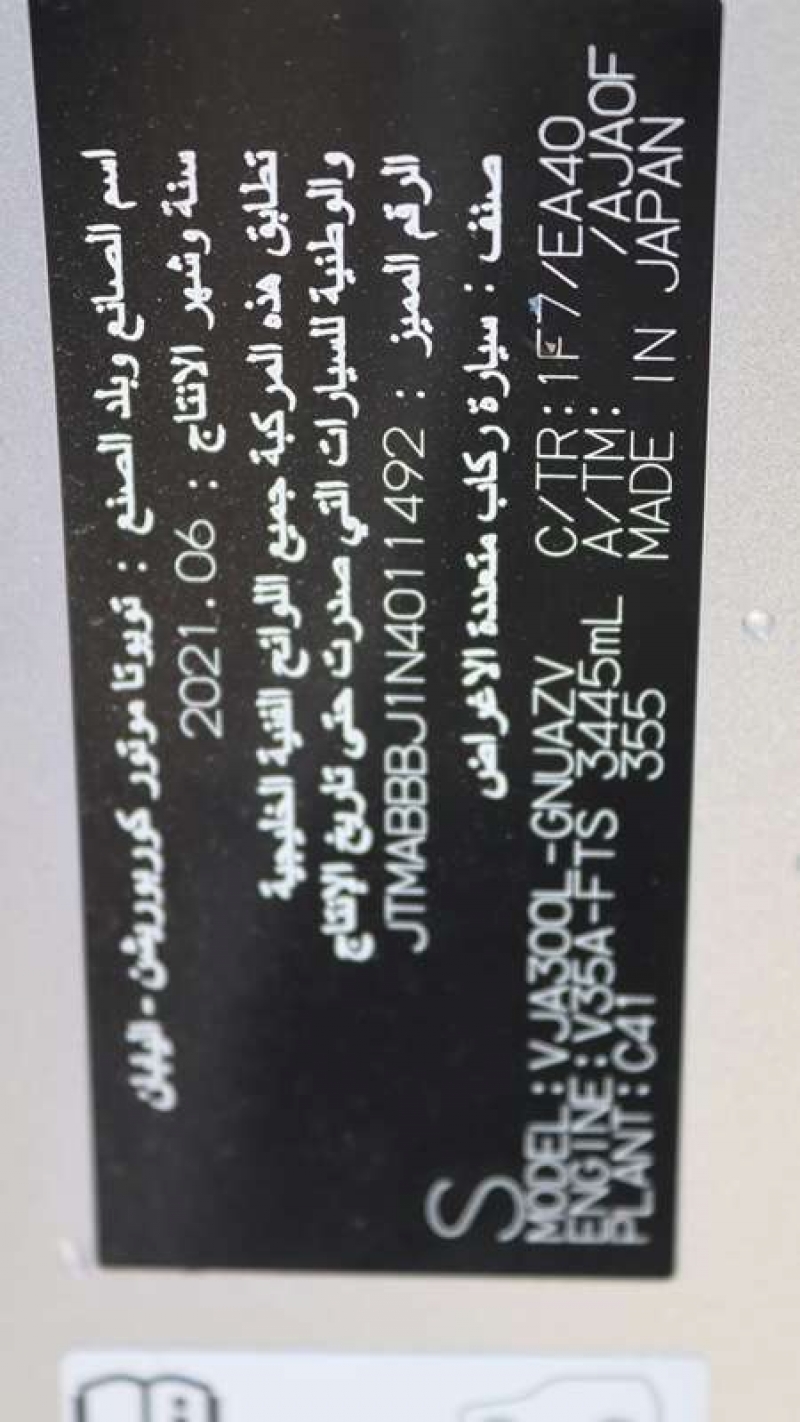 اسم الصانع وبلد الصنع : تويوتا موتور كوربوريشن - اليابان
سنة وشهر الانتاج : 2021.06
تطابق هذه المركبة جميع اللوائح الفنية الخليجية
والوطنية للسيارات التي صدرت حتى تاريخ الإنتاج
الرقم المميز : JTMABBBJ1N4011492
صنف : سيارة ركاب متعددة الاغراض
S
MODEL:VJA300L-GNUAZV C/TR:1F7/EA40
ENGINE:V35A-FTS 3445mL A/TM: /AJA0F
PLANT:C41 355 MADE IN JAPAN